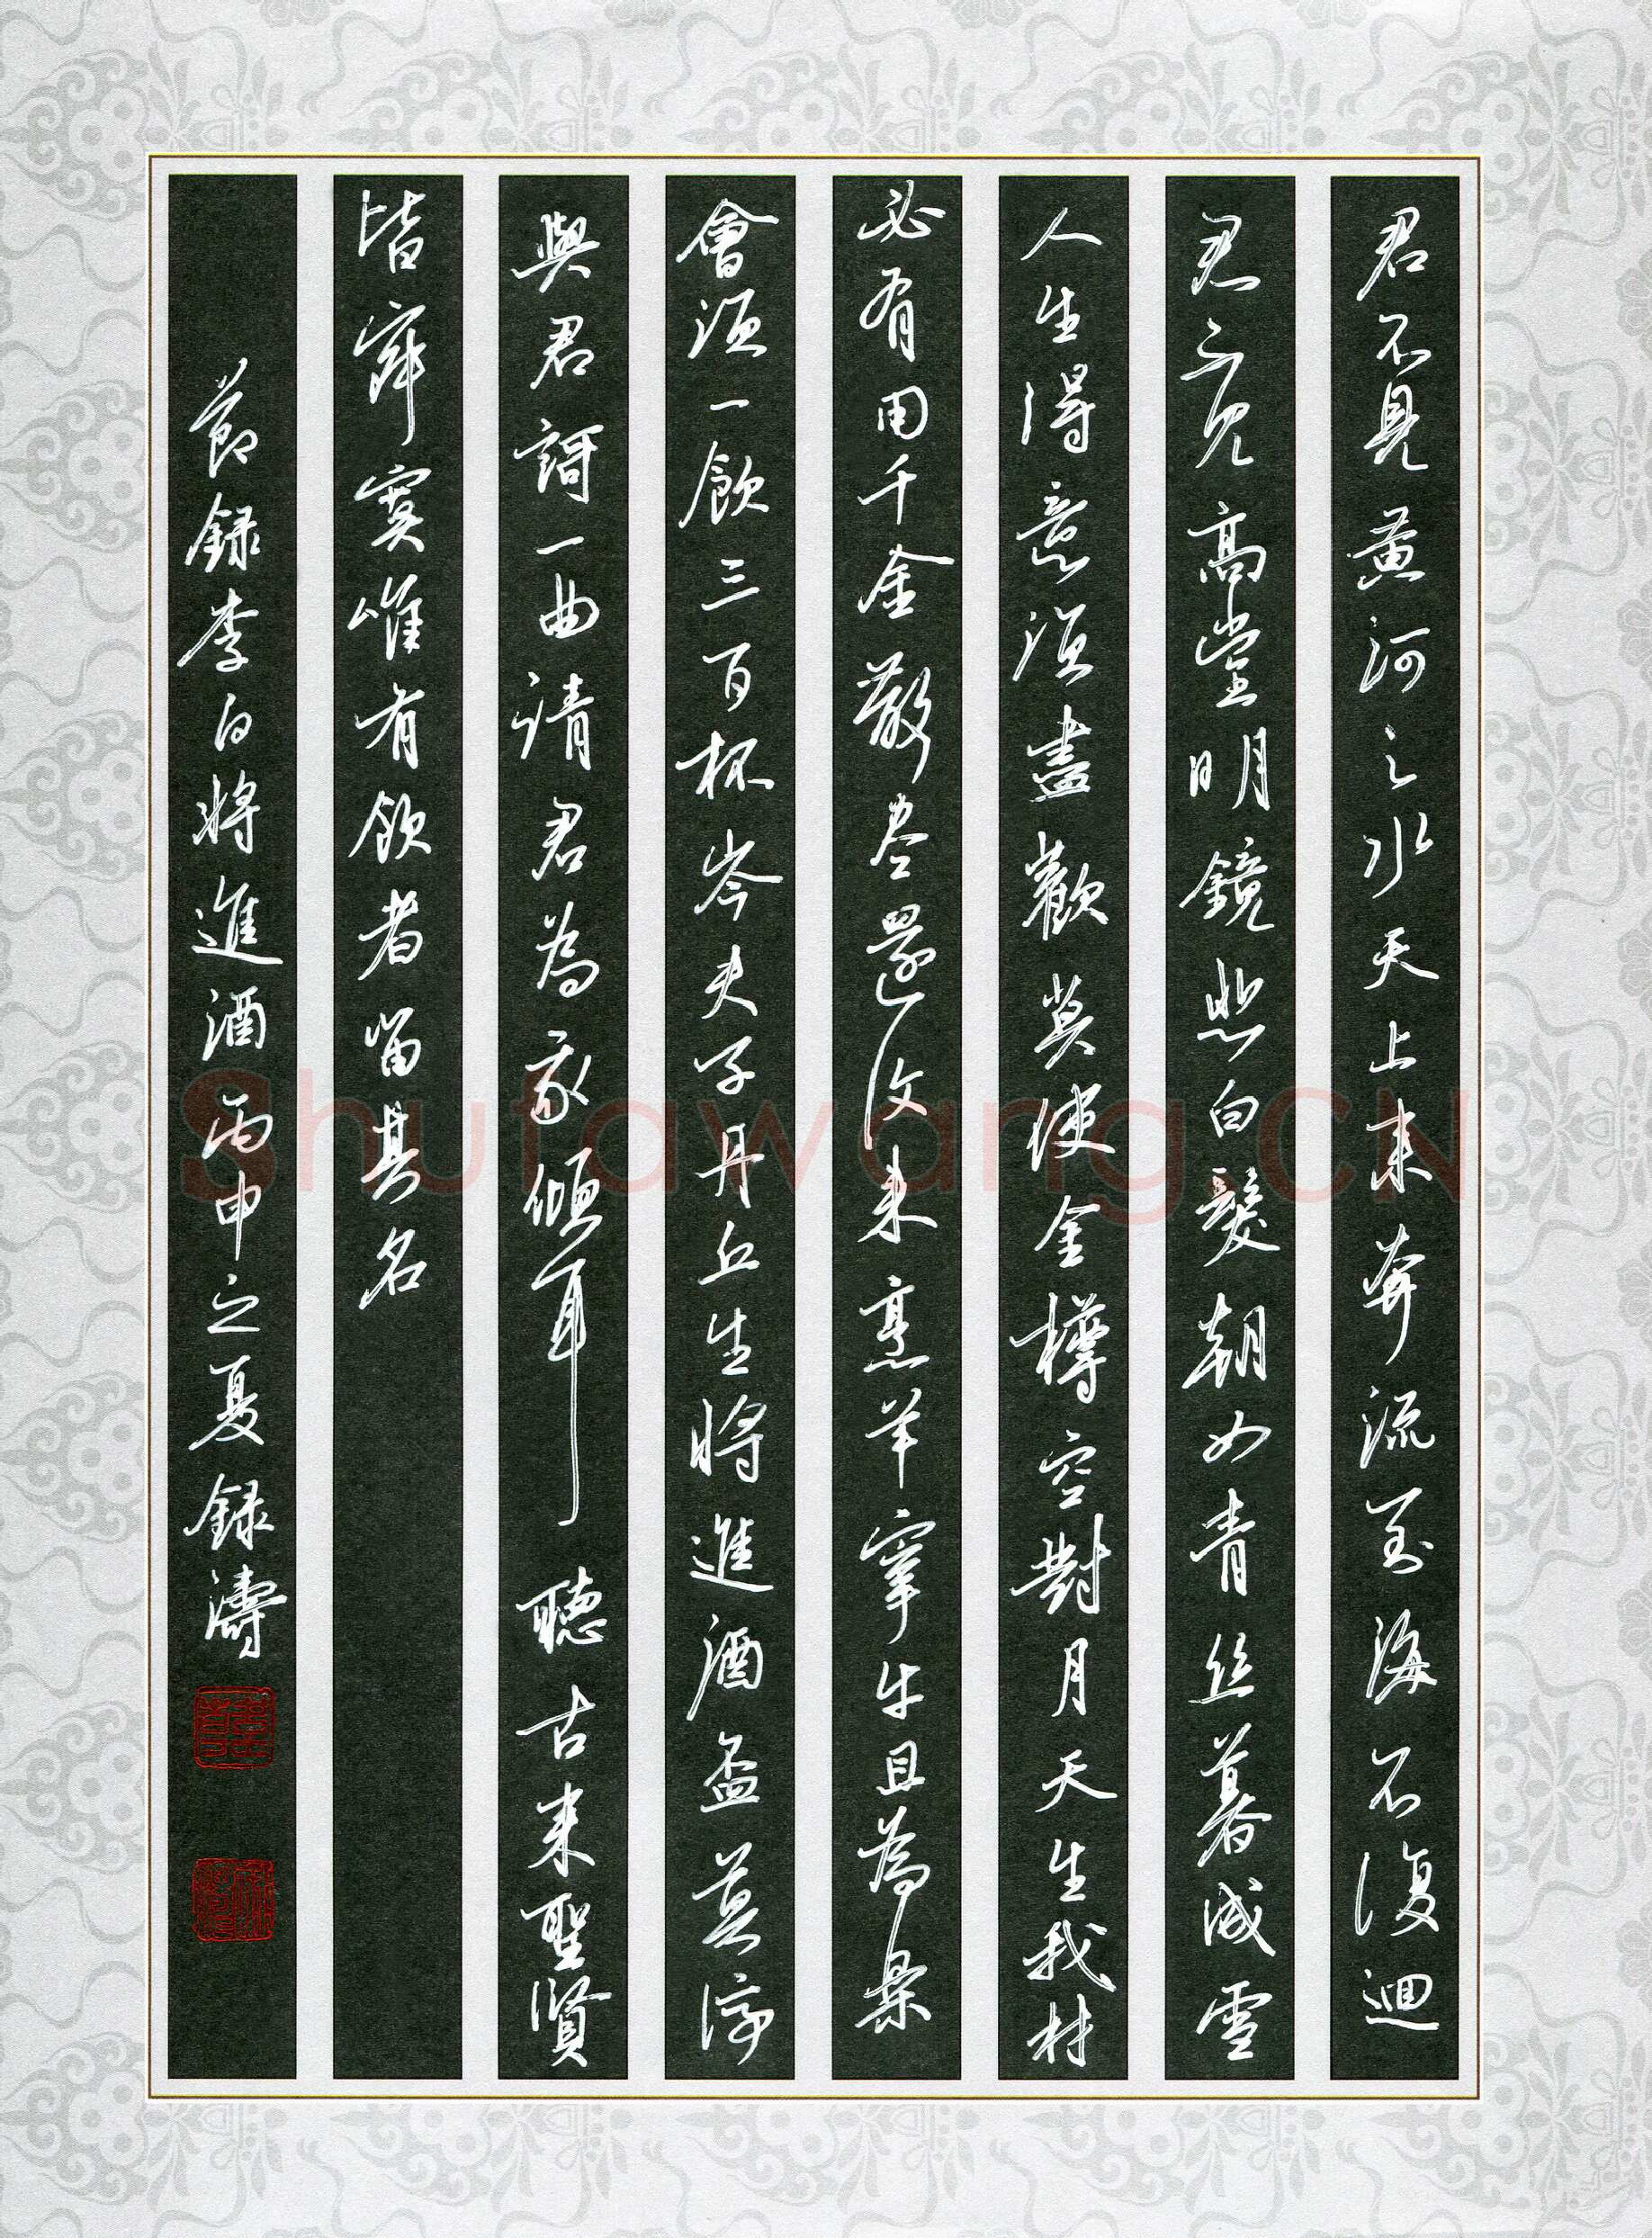 君不見黃河之水天上來奔流至海不復迴
君不見高堂明鏡悲白髮朝如青丝暮成雪
人生得意須盡歡莫使金樽空對月天生我材
必有用千金散尽還復來烹羊宰牛且為樂
會須一飲三百杯岑夫子丹丘生將進酒盃莫停
與君謌一曲請君為我傾耳聽古来聖賢
皆寂寞唯有飲者留其名
節録李白將進酒丙申之夏録濤
Shufawang.CN